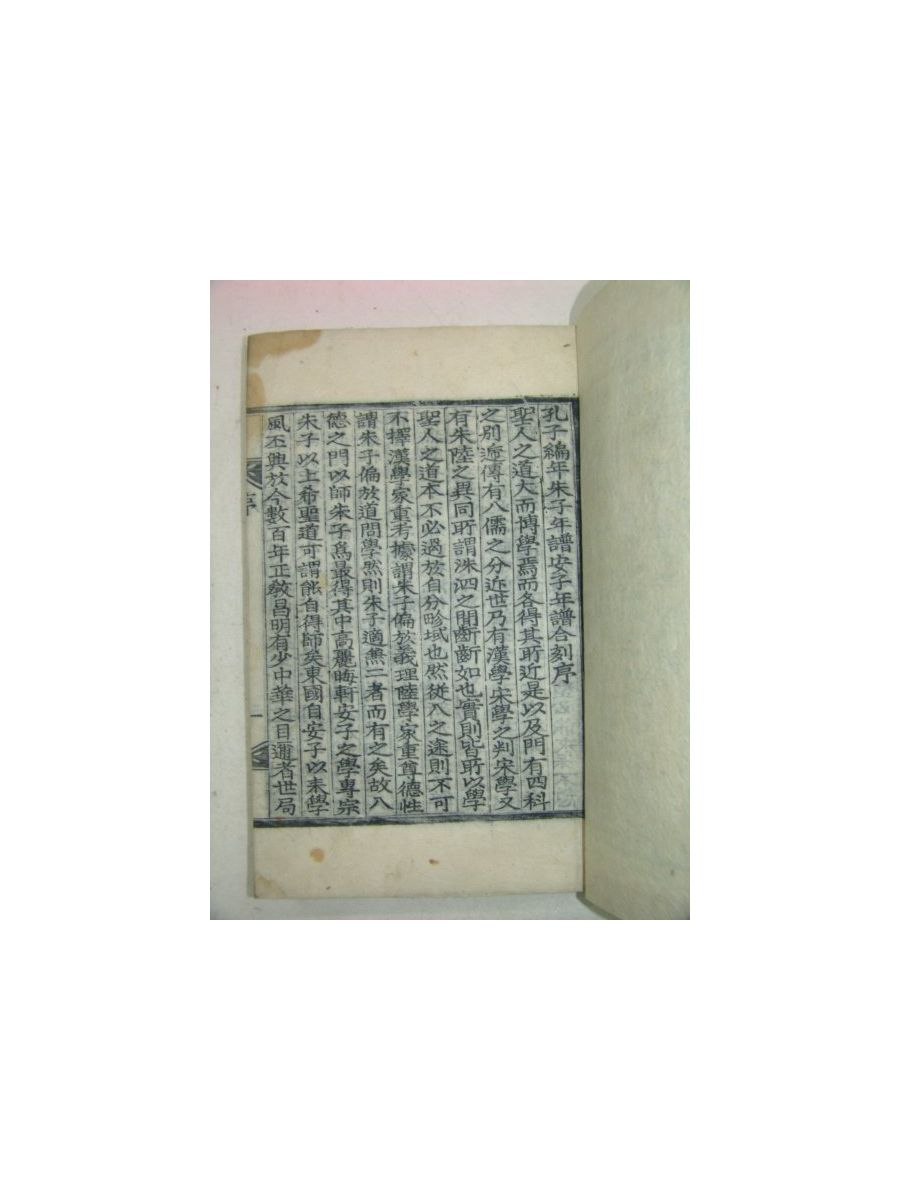 孔子編年朱子年譜安子年譜合刻序
聖人之道大而博學焉而各得其所近是以及門有四科
之別遞傳有八儒之分近世乃有漢學宋學之判宋學又
有朱陸之異同所謂洙泗之間齗齗如也實則皆所以學
聖人之道本不必過於自分畛域也然從入之途則不可
不擇漢學家重考據謂朱子偏於義理陸學家重尊德性
謂朱子偏於道問學然則朱子適無二者而有之矣故入
德之門以師朱子爲最得其中高麗晦軒安子之學專宗
朱子以上希聖道可謂能自得師矣東國自安子以來學
風丕興於今數百年正敎昌明有少中華之目邇者世局
序
一